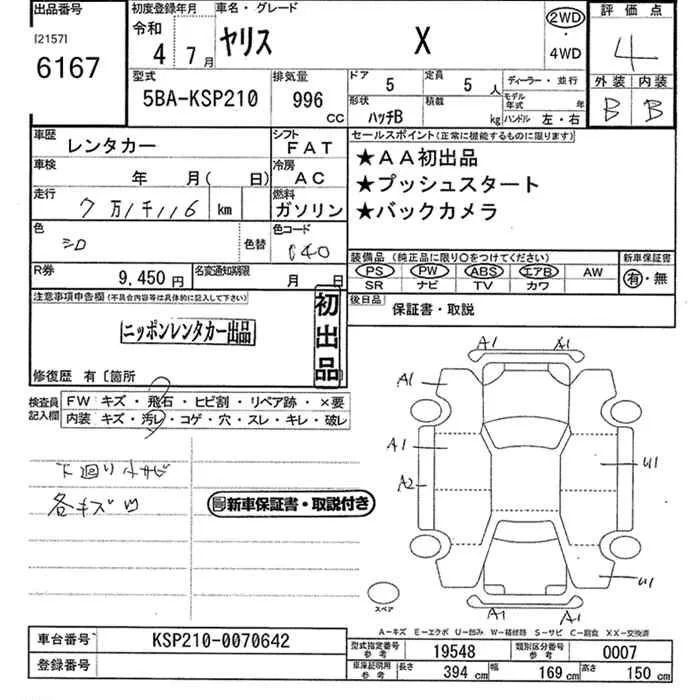 出品番号 初度登録年月 車名・グレード 評価点
[2157] 令和 2WD
6167 4年 7月 ヤリス X ・ 4WD 4
型式 排気量 ドア 定員 ディーラー・並行 外装 内装
5BA-KSP210 996 cc 5 5人 モデル年式 年 B B
形状 ハッチB 積載 kg ハンドル 左・右
車歴 レンタカー シフト FAT セールスポイント(正常に機能するものに限ります)
車検 年 月( 日) 冷房 AC ★AA初出品
走行 7万1千116 km 燃料 ガソリン ★プッシュスタート
★バックカメラ
色 シロ 色替 色コード 040
装備品 (純正品に限り〇をつけてください) 新車保証書
R券 9,450円 名変通知期限 月 日 PS PW ABS エアB AW 有・無
SR ナビ TV カワ
注意事項申告欄(不具合内容等は具体的に記入して下さい) 後日品 保証書・取説
ニッポンレンタカー出品 初出品
修復歴 有〔箇所
検査員記入欄 FW キズ・飛石・ヒビ割・リペア跡・×要
内装 キズ・汚レ・コゲ・穴・スレ・キレ・破レ
A1 A1
A1
A1 U1
A2
下廻り小サビ
各キズ凹 新車保証書・取説付き
U1
スペア A1 A1
A-キズ E-エクボ U-凹み W-補修跡 S-サビ C-腐食 XX-交換済
車台番号 KSP210-0070642 型式指定番号 参考 19548 類別区分番号 参考 0007
登録番号 車庫証明用 参考 長さ 394cm 幅 169cm 高さ 150cm